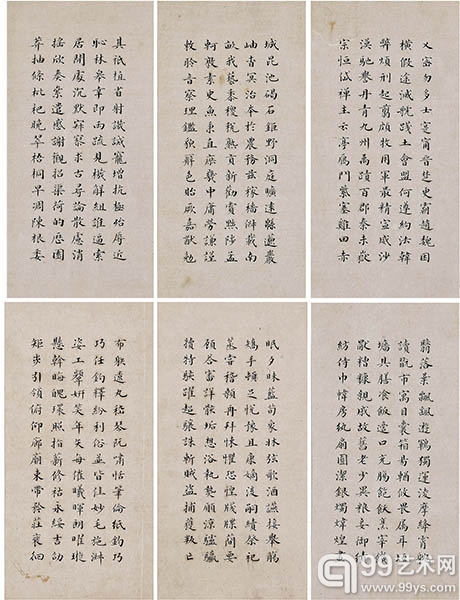 乂密勿多士寔甯晉楚更霸趙魏困
橫假途滅虢踐土會盟何遵約法韓
弊煩刑起翦頗牧用軍最精宣威沙
漠馳譽丹青九州禹蹟百郡秦并嶽
宗恒岱禪主云亭鴈門紫塞雞田赤
城昆池碣石鉅野洞庭曠遠緜邈巖
岫杳冥治本於農務茲稼穡俶載南
畝我藝黍稷稅熟貢新勸賞黜陟孟
軻敦素史魚秉直庶幾中庸勞謙謹
敕聆音察理鑑貌辨色貽厥嘉猷勉
其祗植省躬譏誡寵增抗極殆辱近
恥林皋幸即兩疏見機解組誰逼索
居閒處沉默寂寥求古尋論散慮逍
遙欣奏累遣慼謝歡招渠荷的歷園
莽抽條枇杷晚翠梧桐早凋陳根委
翳落葉飄颻遊鵾獨運凌摩絳霄耽
讀翫市寓目囊箱易輶攸畏屬耳垣
墻具膳飡飯適口充腸飽飫烹宰飢
厭糟糠親戚故舊老少異糧妾御績
紡侍巾帷房紈扇圓潔銀燭煒煌晝
眠夕寐藍筍象牀弦歌酒讌接舉觴
矯手頓足悅豫且康嫡後嗣續祭祀
蒸嘗稽顙再拜悚懼恐惶牋牒簡要
顧答審詳骸垢想浴執熱願涼驢騾
犢特駭躍超驤誅斬賊盜捕獲叛亡
布射遼丸嵇琴阮嘯恬筆倫紙鈞巧
巧任釣釋紛利俗並皆佳妙毛施淑
姿工顰妍笑年矢每催曦暉朗曜璇
懸斡晦魄環照指薪修祜永綏吉劭
矩步引領俯仰廊廟束帶矜莊徘徊
99艺术网
www.99ys.com